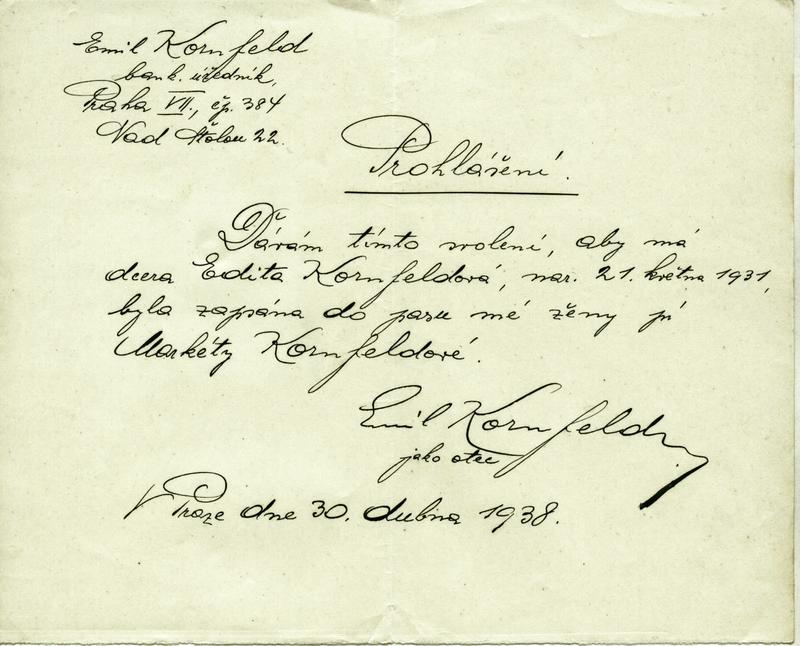 Emil Kornfeld
bank. úředník,
Praha VII., čp. 384
Nad štolou 22.
Prohlášení.
Dávám tímto svolení, aby má
dcera Edita Kornfeldová, nar. 21. května 1931,
byla zapsána do pasu mé ženy pí
Markéty Kornfeldové.
Emil Kornfeld
jako otec
V Praze dne 30. dubna 1938.